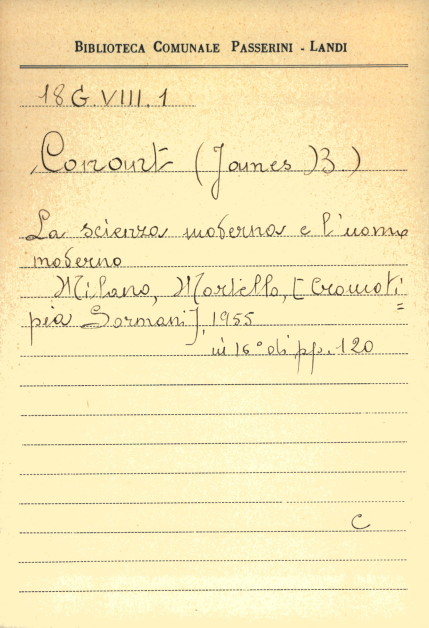 BIBLIOTECA COMUNALE PASSERINI - LANDI
18 G. VIII. 1
Conant (James B.)
La scienza moderna e l'uomo
moderno
Milano, Martello, [Cromoti=
pia Sormani], 1955
in 16° di pp. 120
C